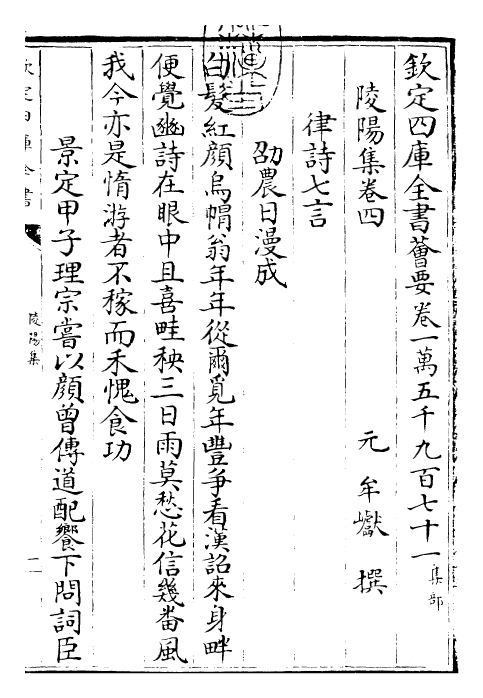 欽定四庫全書薈要卷一萬五千九百七十一集部
陵陽集卷四 元 牟巘 撰
律詩七言
劭農日漫成
白髮紅顔烏㡌翁年年從爾覓年豐爭看漢詔來身畔
便覺豳詩在眼中且喜畦秧三日雨莫愁花信幾畨風
我今亦是惰游者不稼而禾愧食功
景定甲子理宗嘗以顔曾傳道配饗下問詞臣
欽定四庫全書
陵陽集
一